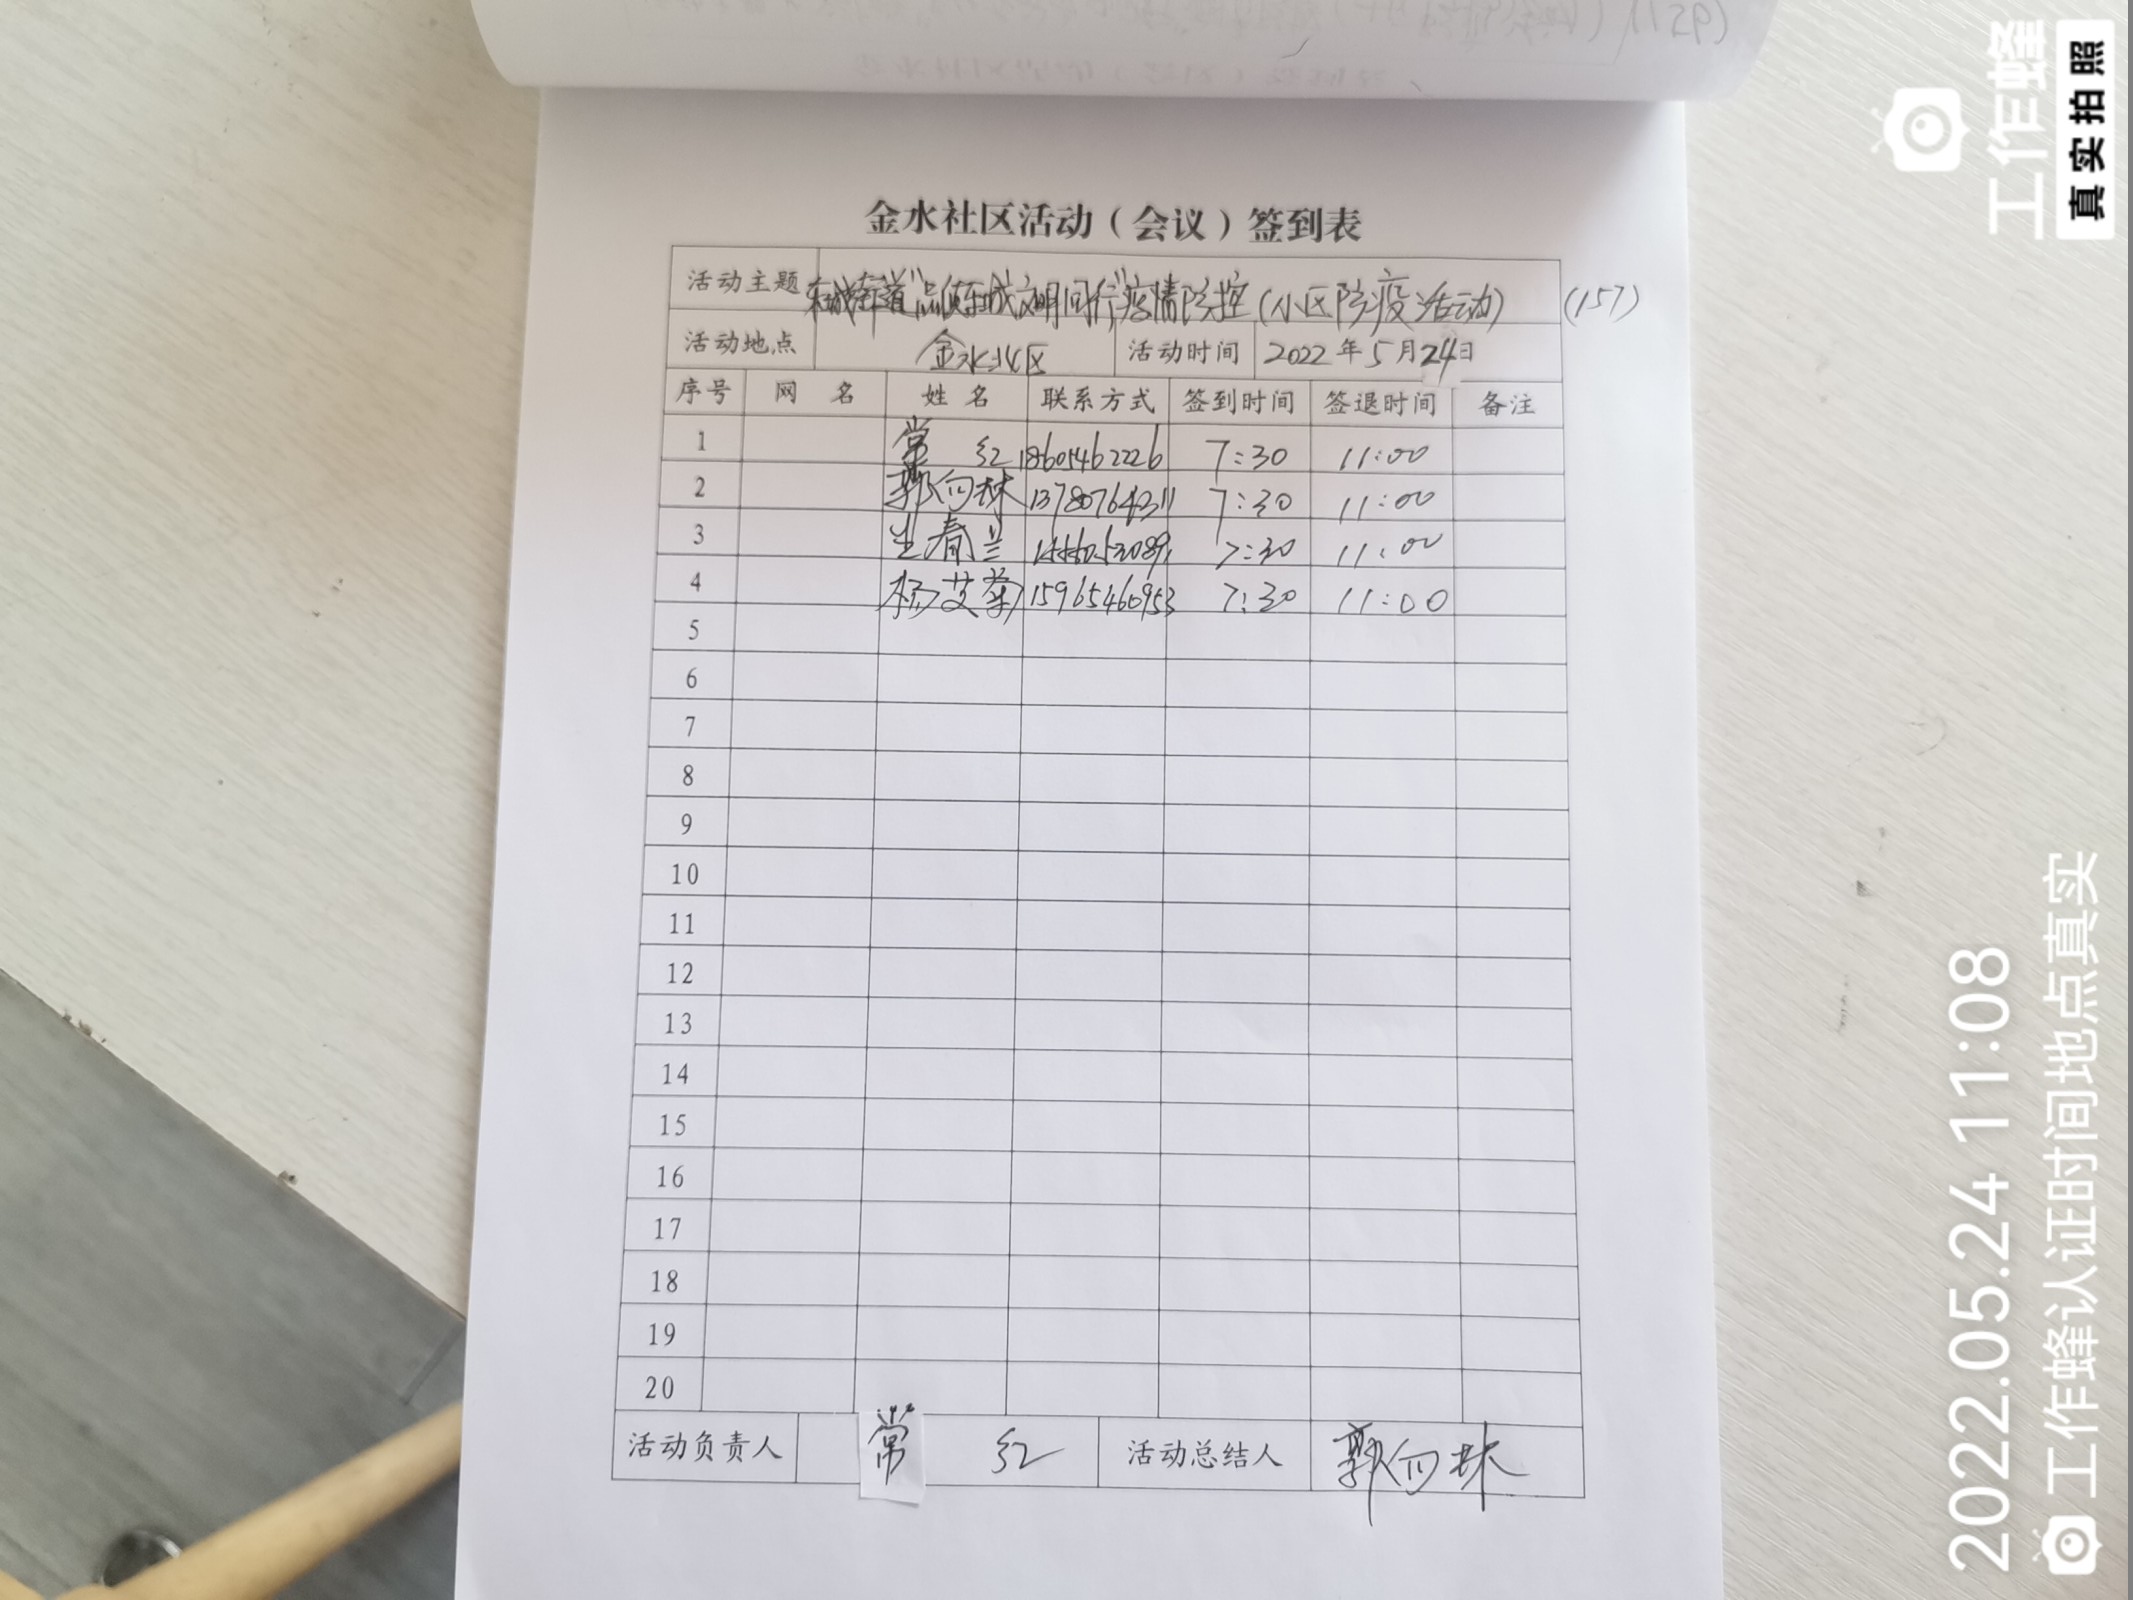 金水社区活动（会议）签到表
活动主题 东城街道"品质东城文明同行"疫情防控(小区防疫活动) (157)
活动地点 金水北区 活动时间 2022年5月24日
序号 网 名 姓 名 联系方式 签到时间 签退时间 备注
1 常 红 18605462226 7:30 11:00
2 郭向林 13780764311 7:30 11:00
3 生春兰 7:30 11:00
4 杨艾菊 15965460953 7:30 11:00
5
6
7
8
9
10
11
12
13
14
15
16
17
18
19
20
活动负责人 常 红 活动总结人 郭向林
工作蜂
真实拍照
2022.05.24 11:08
工作蜂认证时间地点真实